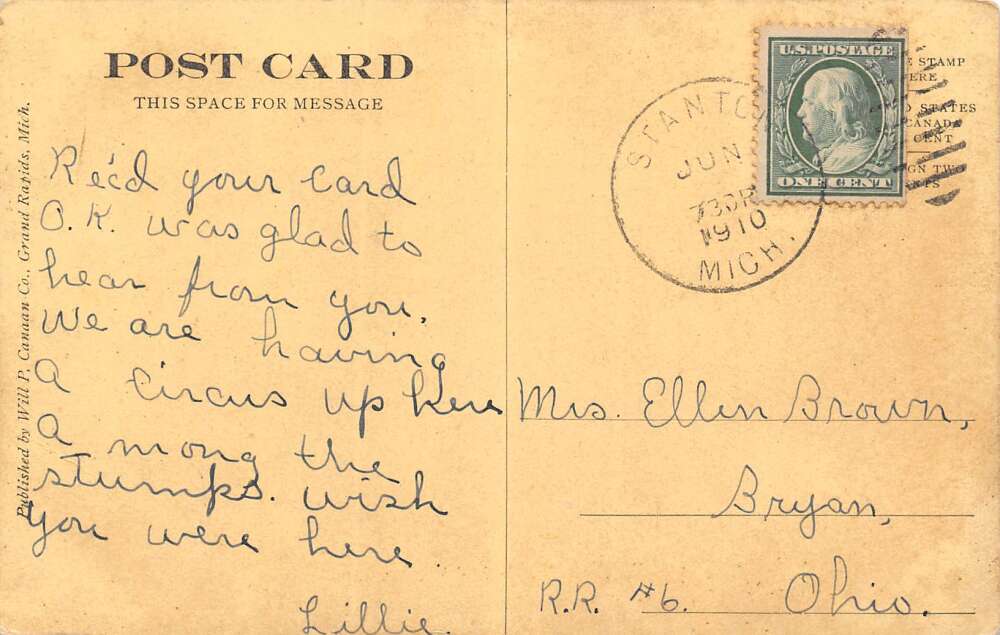 POST CARD
THIS SPACE FOR MESSAGE
Published by Will P. Canaan Co., Grand Rapids, Mich.
Rec'd your card
O.K. was glad to
hear from you.
We are having
a circus up here
a mong the
stumps. wish
you were here
Lillie.
U.S. POSTAGE
ONE CENT
STAMP
STATES
CANADA
CENT
TWO
STANTO
JUN
1910
MICH.
Mrs. Ellen Brown,
Bryan,
R.R. #6. Ohio.